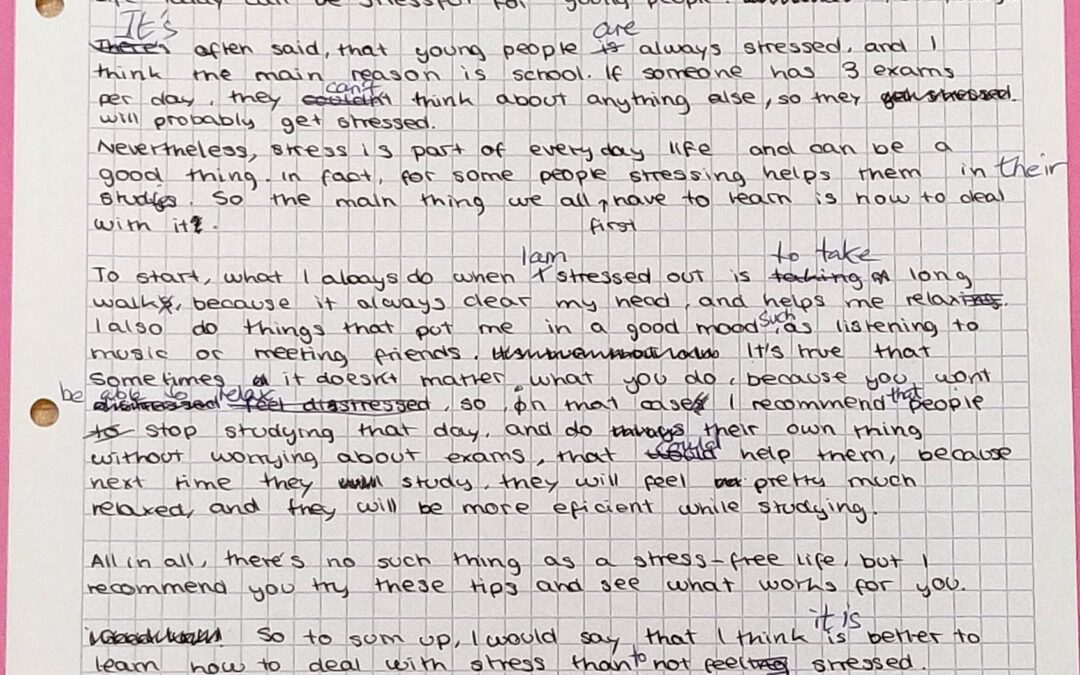 life today can be stressful for young people.
It's are
often said, that young people always stressed, and I
think the main reason is school. If someone has 3 exams
can't
per day, they think about anything else, so they
will probably get stressed.
Nevertheless, stress is part of everyday life and can be a
good thing. In fact, for some people stressing helps them in their
studies. So the main thing we all have to learn is how to deal
with it. first
I am to take
To start, what I aloays do when stressed out is long
walks, because it always clear my head, and helps me relax.
I also do things that put me in a good mood such as listening to
music or meeting friends. It's true that
sometimes it doesn't matter what you do, because you wont
be able to relax
, so in that case I recommend that people
stop studying that day, and do their own thing
without worrying about exams, that could help them, because
next time they study, they will feel pretty much
relaxed, and they will be more eficient while studying.
All in all, there's no such thing as a stress-free life, but I
recommend you try these tips and see what works for you.
it is
So to sum up, I would say that I think better to
learn how to deal with stress than to not feel stressed.